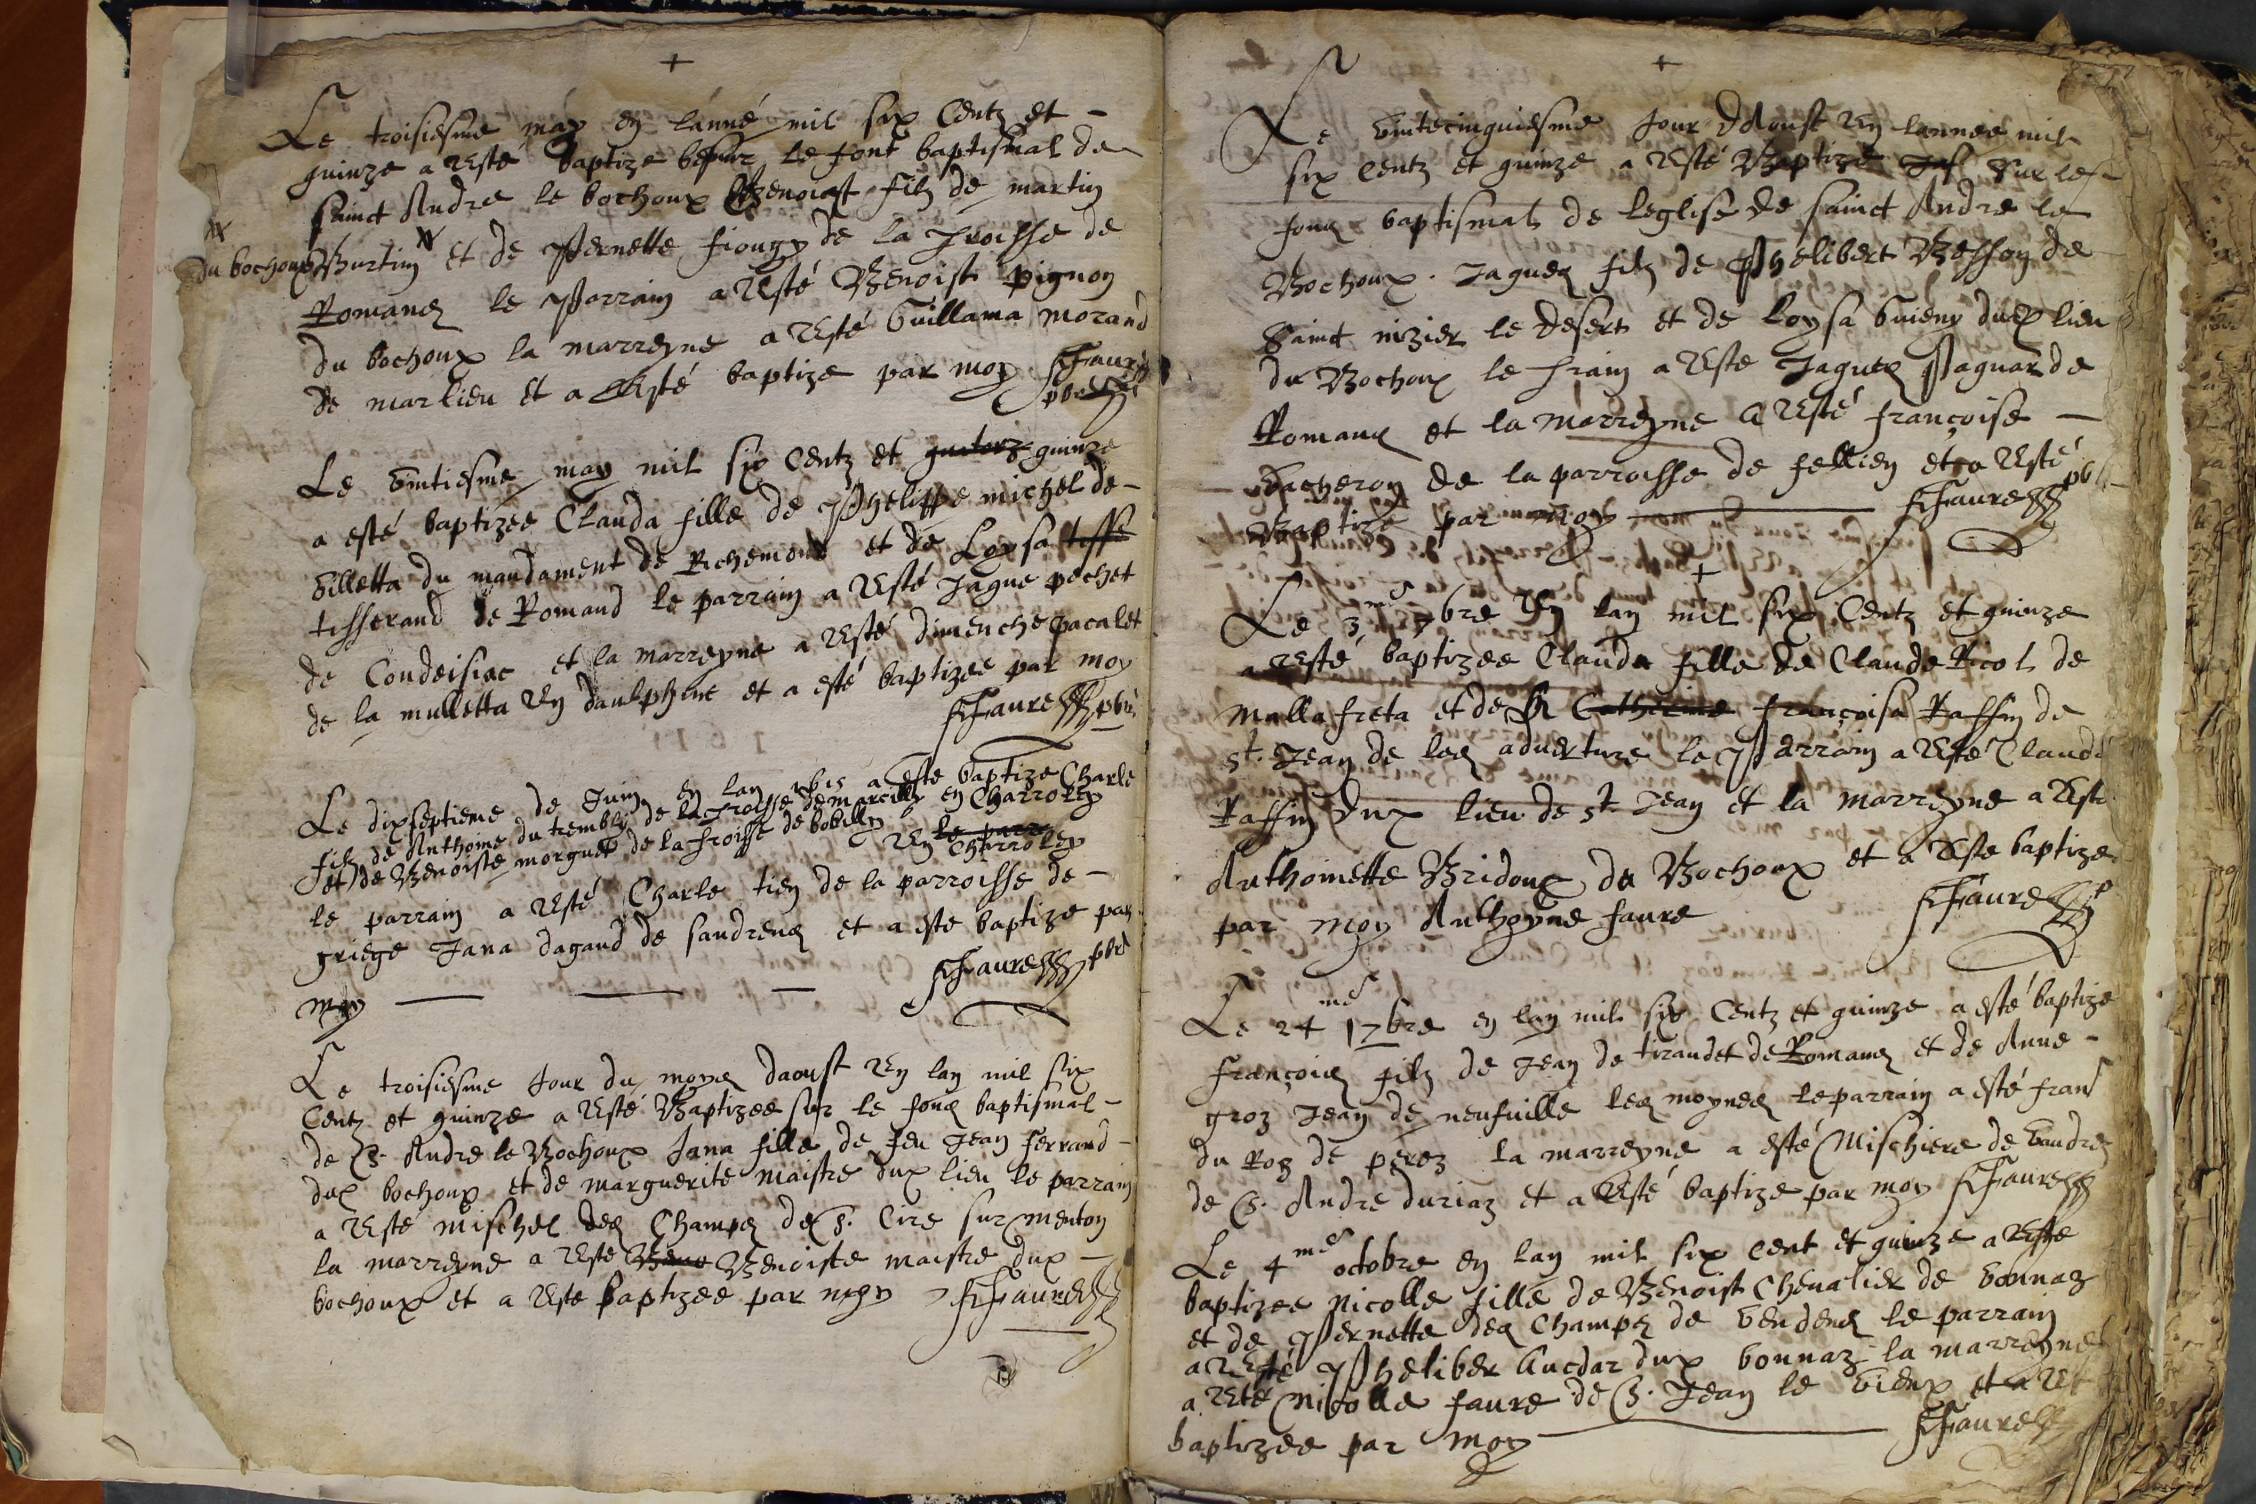 +
Le troisiesme may en lanné mil six Centz et -
quinze a Esté baptize sur le font baptismal de
sainct Andre le bochoux Benoict filz de martin
du bochoux Burtin et de Pernette fiongy de la Froisse de
Romans le Parrain a Esté Benoist pignon
du bochoux la marreyne a Esté Guillama morand
de marlieu et a Esté baptize par moy Faure
pbre
Le vintiesme may mil six Centz et quatorz quinze
a esté baptizee Clauda fille de Phelippe michel de -
villetta du mandament de Richemont et de Loysa tiss
tisserand de Romand le parrain a Esté Jaque pochet
de Condeisiac et la marreyne a Esté dimenche pacalet
de la mulletta En daulphine et a esté baptizee par moy
Faure pbre
Le dixseptieme de Juin en lan 1615 a este baptize Charle
filz de Anthoine du trembly de la Froisse de marcilly en Charroley
et de Benoiste morguet de la froisse de bobilly En le parr Charroley
le parrain a Esté Charle tien de la parroisse de -
griege Jana dagaud de sandrens et a este baptize par
moy Faure pbre
Le troisiesme Jour du moys daoust En lan mil six
Centz et quinze a Esté Baptizee sur le fons baptismal -
de S. Andre le Bochoux Jana fille de feu Jean Ferrand -
dux bochoux et de marguerite maistre dux lieu le parrain
a Esté mischel des Champs de S. Cire sur menton
la marreyne a Este Beno Benoiste maistre dux -
bochoux et a Este baptizee par moy Faure
+
Le vintecinquiesme Jour dAoust En lannee mil
six Centz et quinze a Esté Baptize Jaq sur les
fons baptismal de leglise de sainct Andre le
Bochoux. Jaques filz de Phelibert Besson de
Sainct nizier le desert et de Loysa buieny dux lieu
du Bochoux le frain a Este Jaques Paguar de
Romans et la marreyne a Esté françoise -
vacheron de la parroisse de fellien et a Esté
Baptize par moy Faure pb
+
Le 3me 7bre En lan mil six Centz et quinze
a Esté baptizee Clauda fille de Claude Ricol de
mallafreta et de Catherine françoisa Raffin de
St. Jean de les aduerture le Parrain a Este Claude
Raffin dux lieu de St. Jean et la marreyne a Esté
Anthoinette Bridoux du Bochoux et a Este baptize
par moy Anthoyne faure Faure
Le 24me 17bre en lan mil six Centz et quinze a esté baptize
françois filz de Jean de tirandet de Romans et de Anne -
groz Jean de neufuille les moynes le parrain a esté frans
du Roz de perez la marreyne a esté Mischiere de vaudrez
de S. Andre duriaz et a Esté baptize par moy Faure
Le 4me octobre en lan mil six Cent et quinze a Este
baptizee nicolle fille de Benoist Cheualier de bonnaz
et de Pernette des Champs de vendens le parrain
a Esté Pheliber Gucdar dux bonnaz la marreyne
a Esté Nicolle faure de S. Jean le vieux et a Est
baptizee par moy Faure